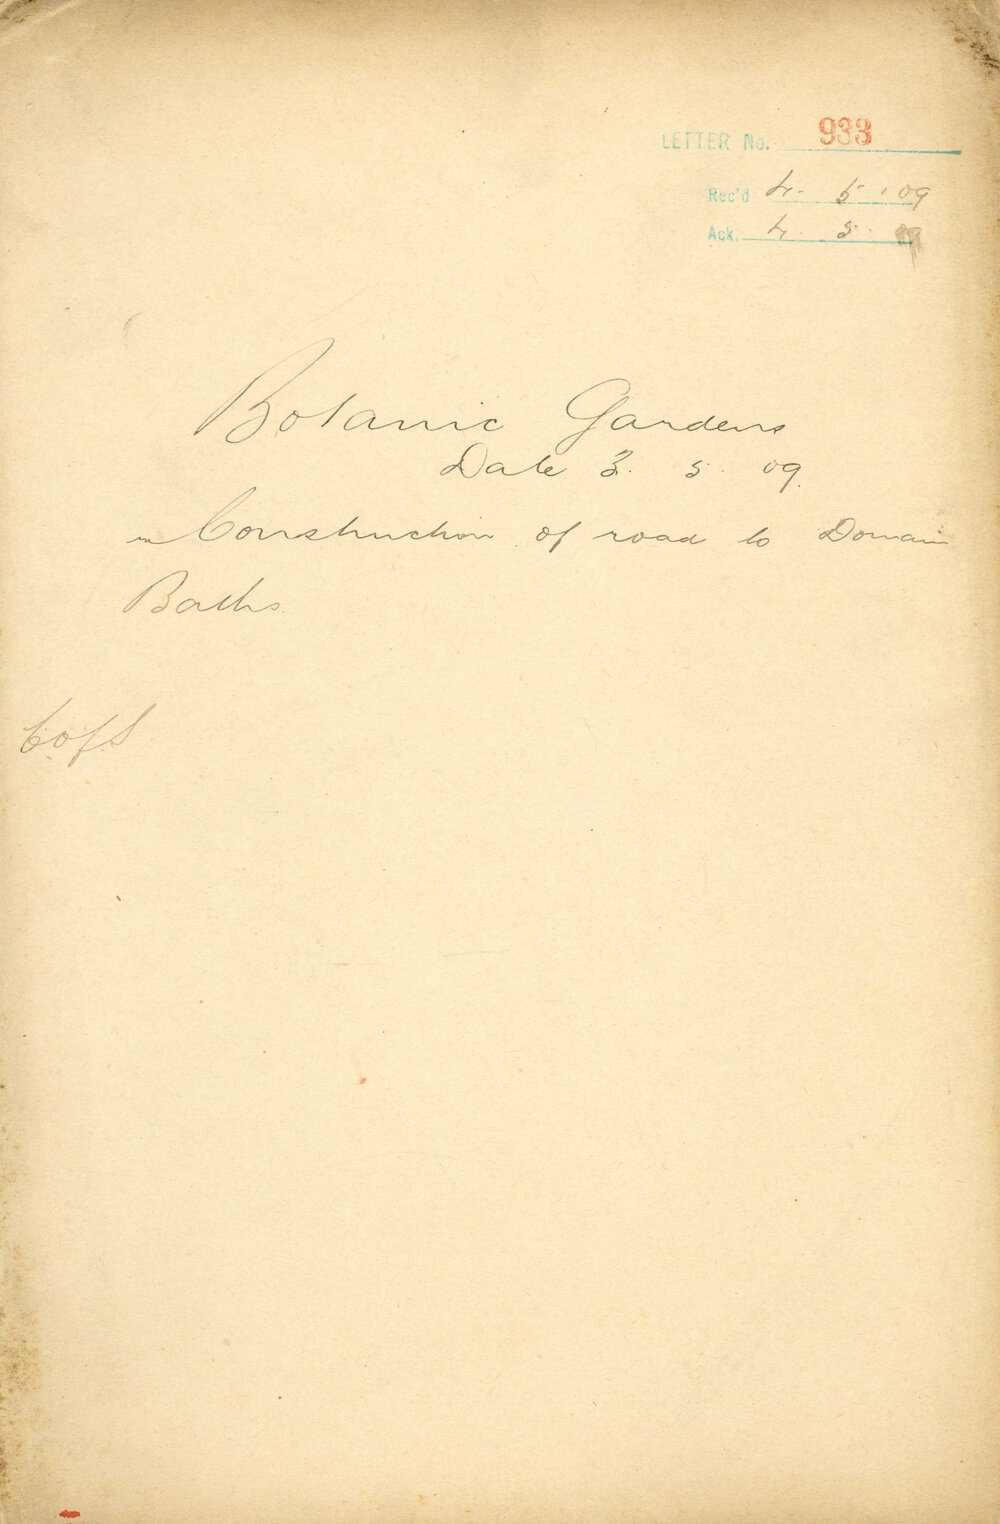 LETTER No. 933
Rec'd 4. 5. 09
Ack. 4. 5. 09
Botanic Gardens
Date 3. 5. 09.
re Construction of road to Domain
Baths.
C of S